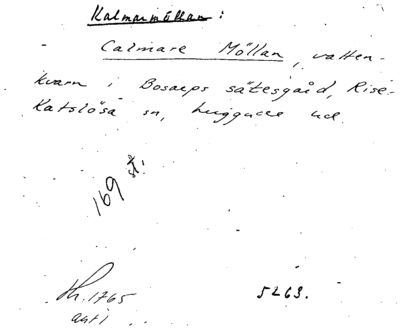 Kalmarmöllan :
Calmare Möllan, vatten-
kvarn i Bosarps sätesgård, Rise-
Katslösa sn,
169 st!
1765
5263.